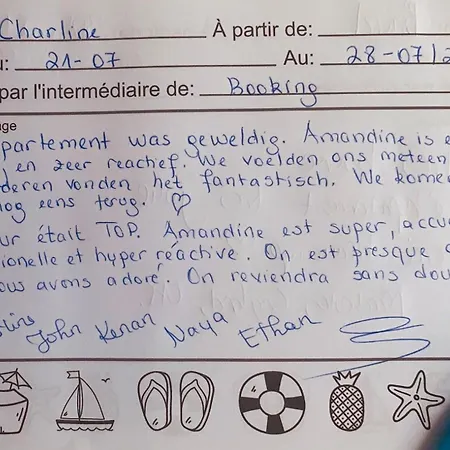 Charline À partir de:
: 21-07 Au: 28-07/2
par l'intermédiaire de: Booking
ge
partement was geweldig. Amandine is e
en zeer reactief. We voelden ons meteen
deren vonden het fantastisch. We komen
nog eens terug. ♡
ur était TOP. Amandine est super, accu
ionelle et hyper réactive. On est presque
ous avons adoré. On reviendra sans dou
John Kenan Naya Ethan